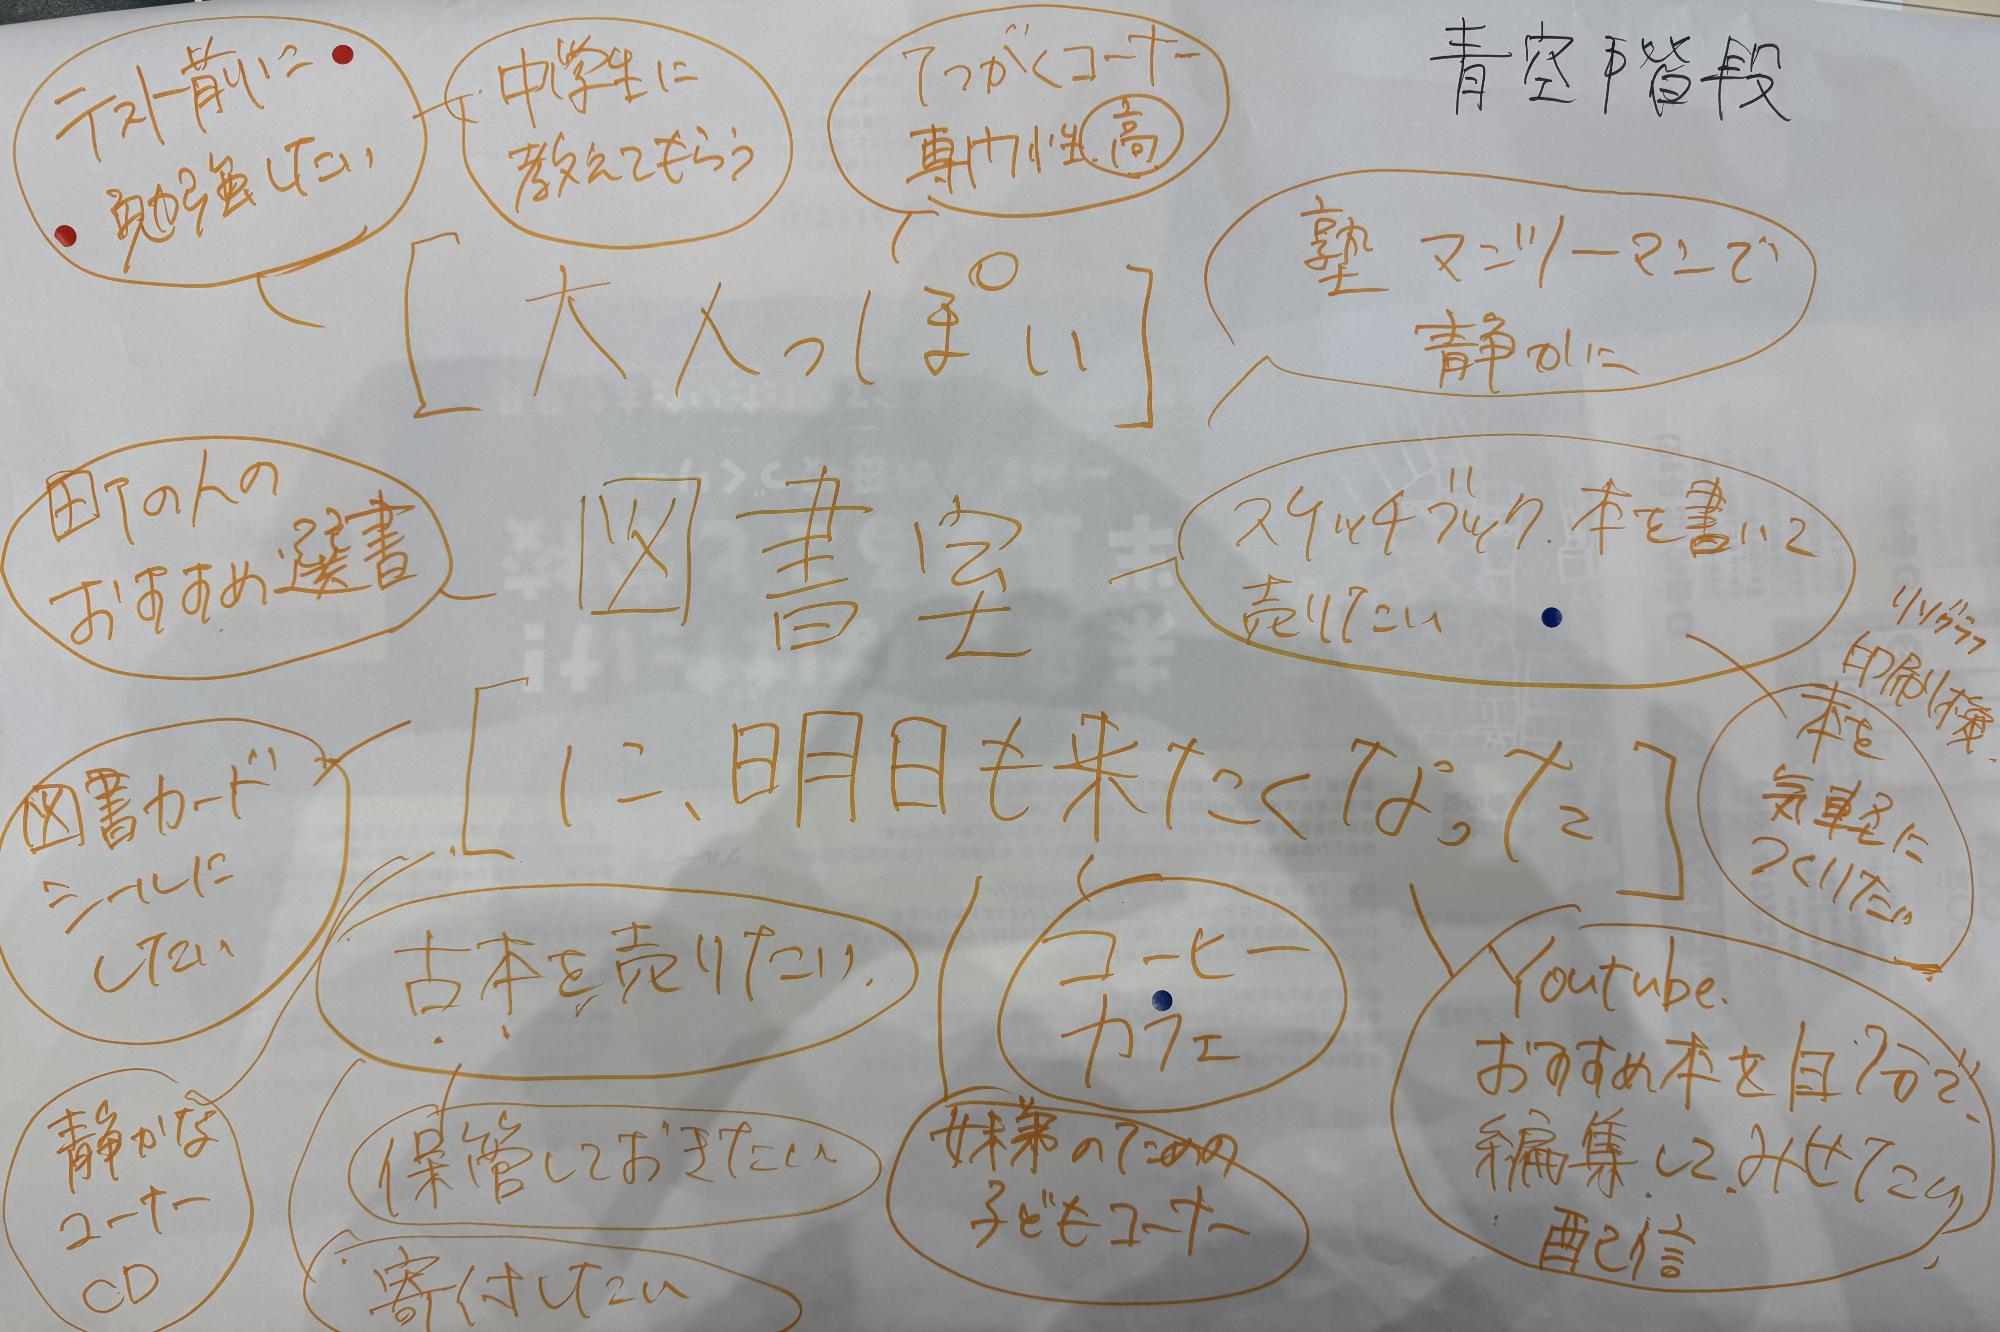 青空階段
テスト前に
勉強したい
中学生に
教えてもらう
てつがくコーナー
専門性 高
塾 マンツーマンで
静かに
[大人っぽい]
町の人の
おすすめ選書
図書室
スケッチブック.本を書いて
売りたい
リソグラフ
印刷機.
本を
気軽に
つくりたい
[に、明日も来たくなった]
図書カード
シールに
したい
古本を売りたい.
コーヒー
カフェ
Youtube.
おすすめ本を自分で、
編集して.みせたい
配信
静かな
コーナー
CD
保管しておきたい
妹弟のための
子どもコーナー
寄付したい